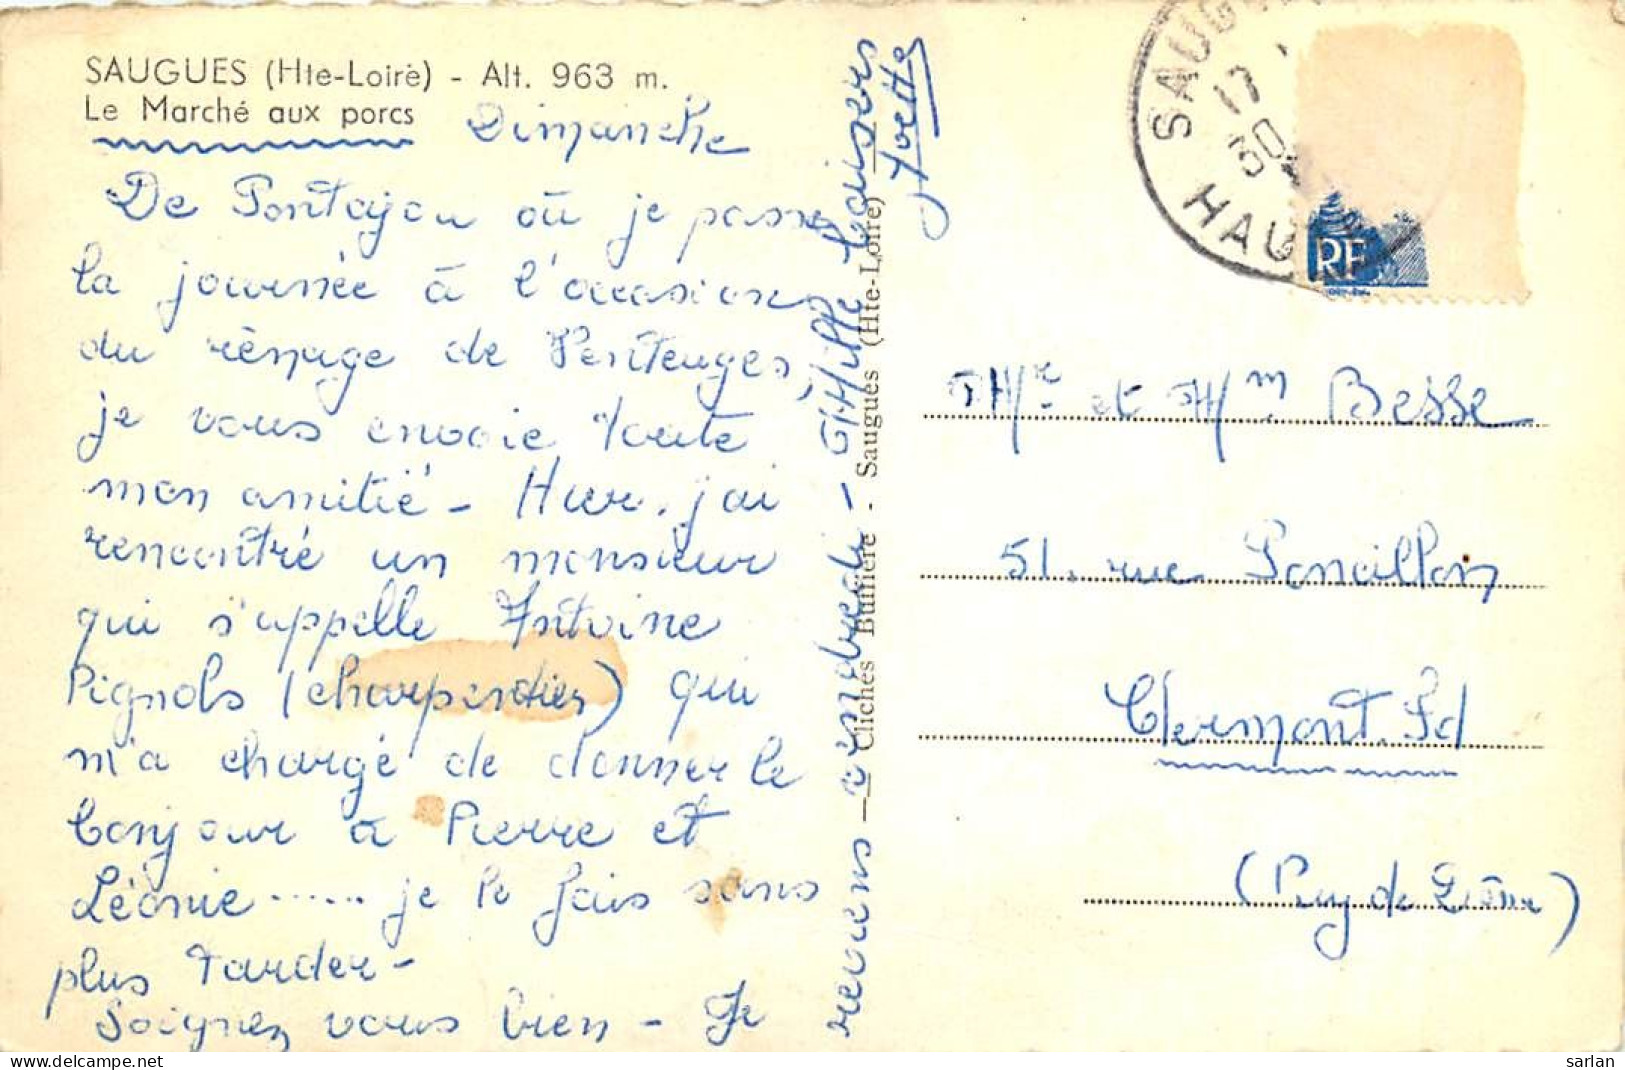 SAUGUES (Hte-Loire) - Alt. 963 m.
Le Marché aux porcs
Dimanche
De Pontajou où je passe
la journée à l'occasion
du rénage de Venteuges,
je vous envoie toute
mon amitié - Hier, j'ai
rencontré un monsieur
qui s'appelle Antoine
Pignols (charpentier) qui
m'a chargé de donner le
bonjour à Pierre et
Léonie ...... je le fais sans
plus tarder -
Soignez vous bien - Je
reviens vendredi - Mille baisers
Yvette
Clichés Buffière - Saugues (Hte-Loire)
SAUGUES
17
30
HAU
RF
Mr et Mm Besse
51. rue
Clermont. Fd
(Puy de Dôme)
sarlan